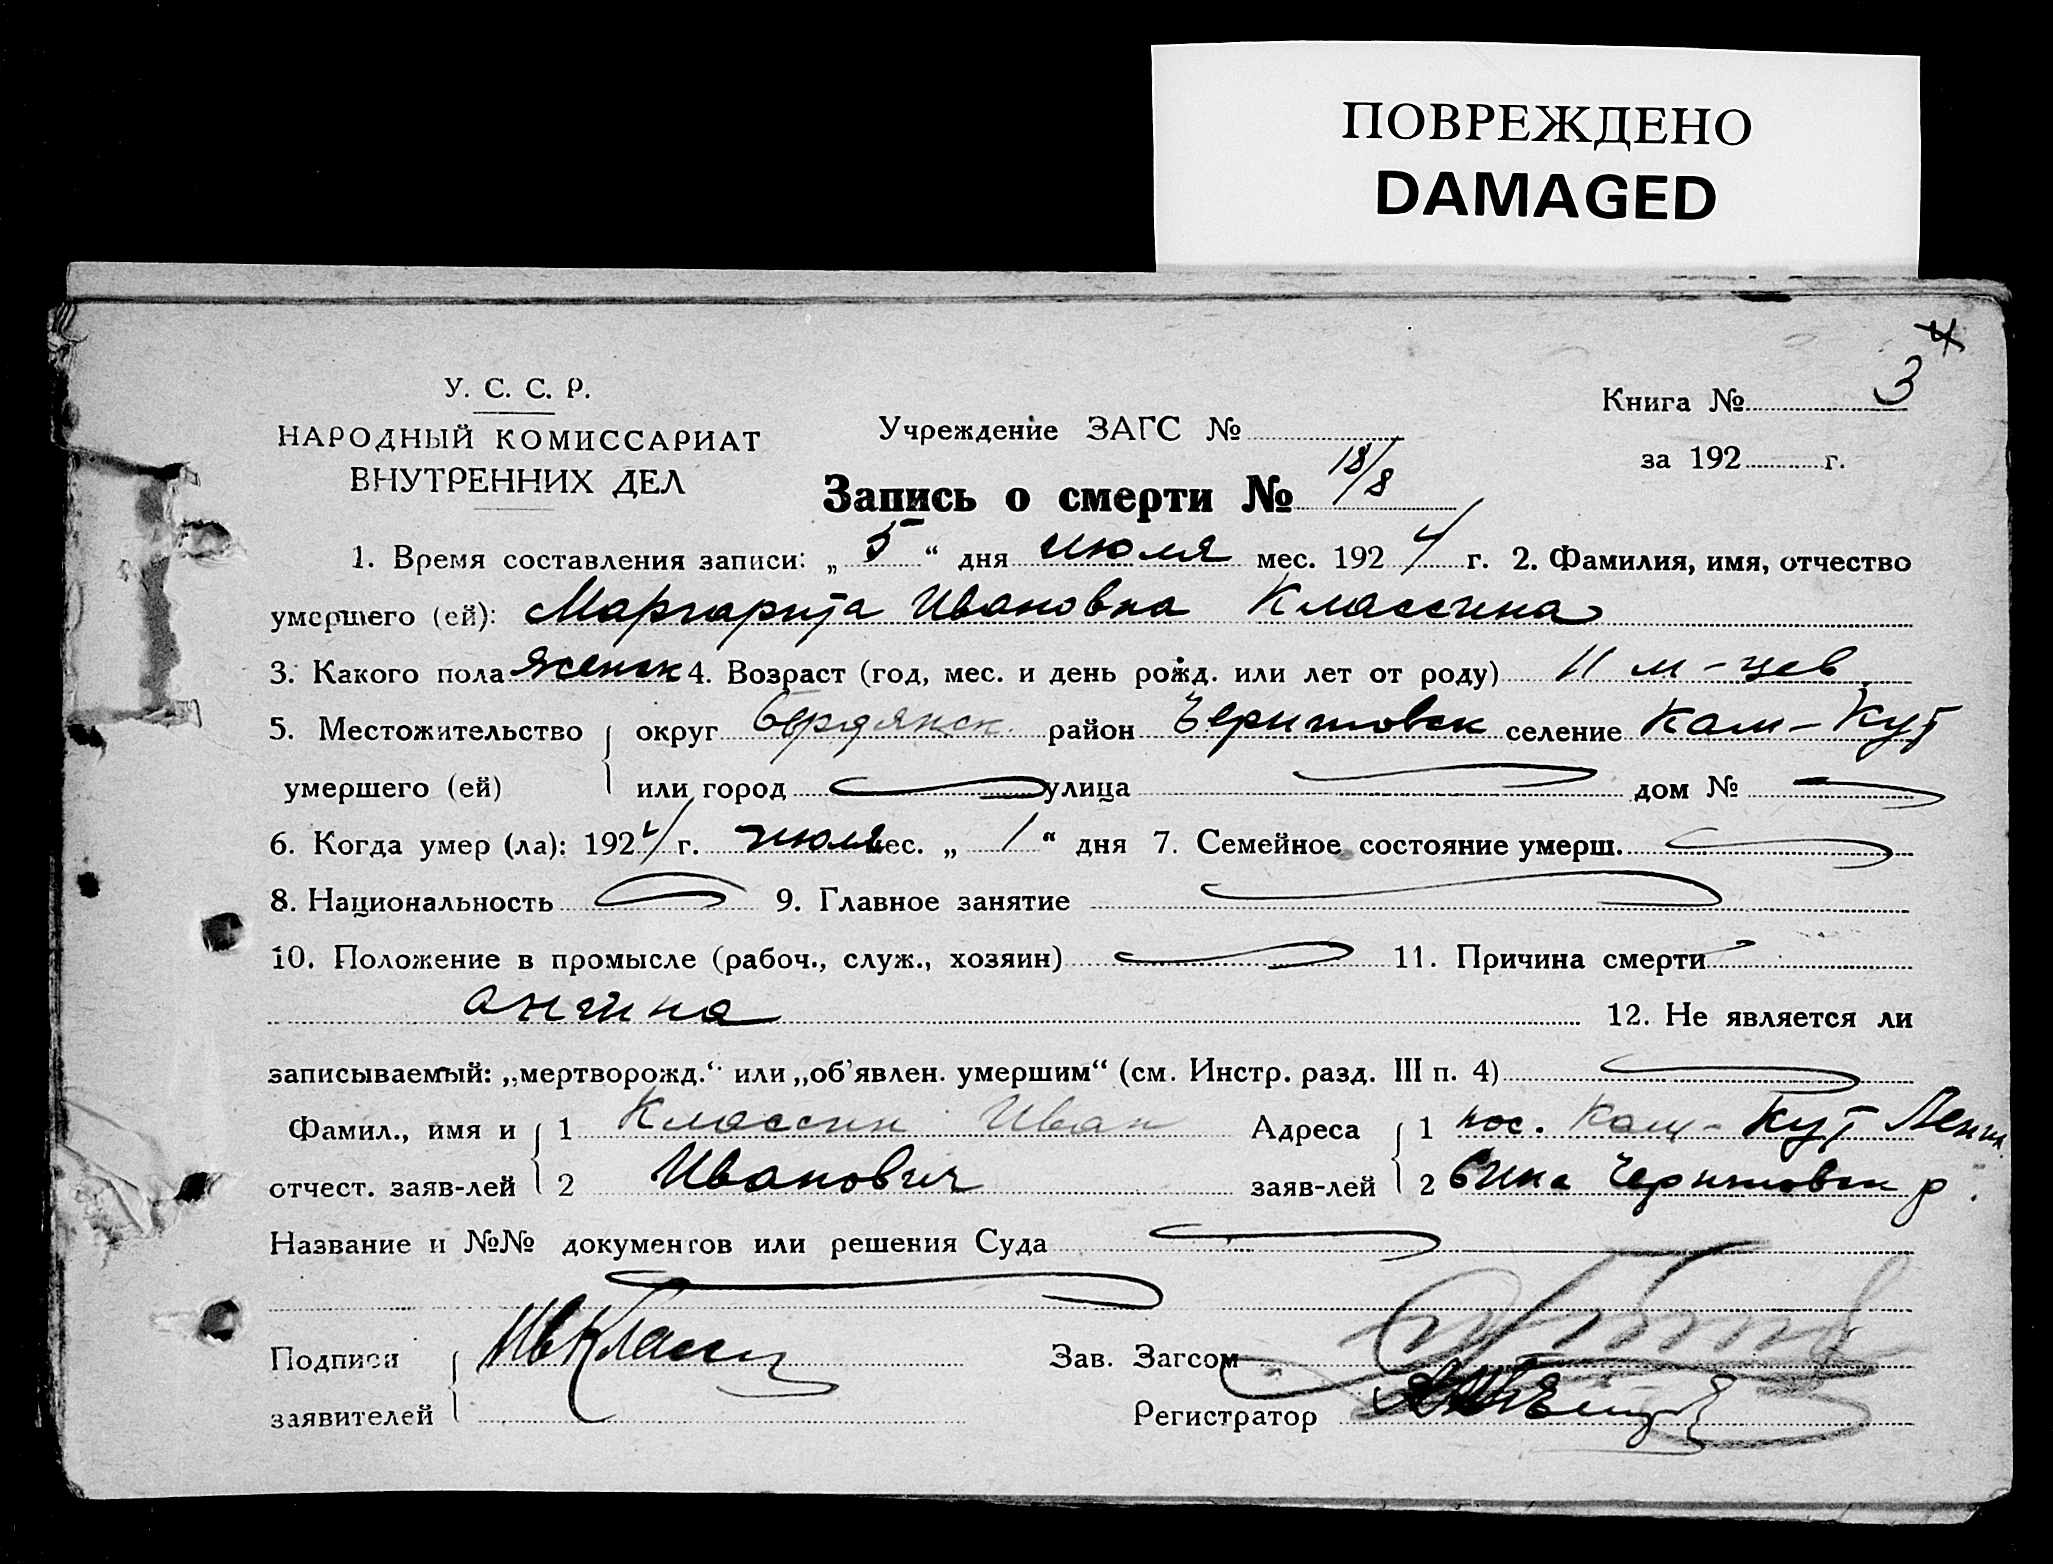 ПОВРЕЖДЕНО
DAMAGED
4
У. С. С. Р.
НАРОДНЫЙ КОМИССАРИАТ
ВНУТРЕННИХ ДЕЛ
Учреждение ЗАГС №
Книга № 3
за 192 г.
Запись о смерти № 18/8
1. Время составления записи: „ 5 “ дня июля мес. 1924 г. 2. Фамилия, имя, отчество
умершего (ей): Маргарита Ивановна Классина
3. Какого пола женск 4. Возраст (год, мес. и день рожд. или лет от роду) 11 м-цев
5. Местожительство округ Бердянск. район Черниговск селение Кам-Кут
умершего (ей) или город улица дом №
6. Когда умер (ла): 1924 г. июля мес. „ 1 “ дня 7. Семейное состояние умерш.
8. Национальность 9. Главное занятие
10. Положение в промысле (рабоч., служ., хозяин) 11. Причина смерти
ангина 12. Не является ли
записываемый: „мертворожд.“ или „об'явлен. умершим“ (см. Инстр. разд. III п. 4)
Фамил., имя и 1 Классин Иван Адреса 1 пос. Кам-Кут
отчест. заяв-лей 2 Иванович заяв-лей 2 Черниговск р.
Название и №№ документов или решения Суда
Подписи Ив Классин Зав. Загсом
заявителей Регистратор